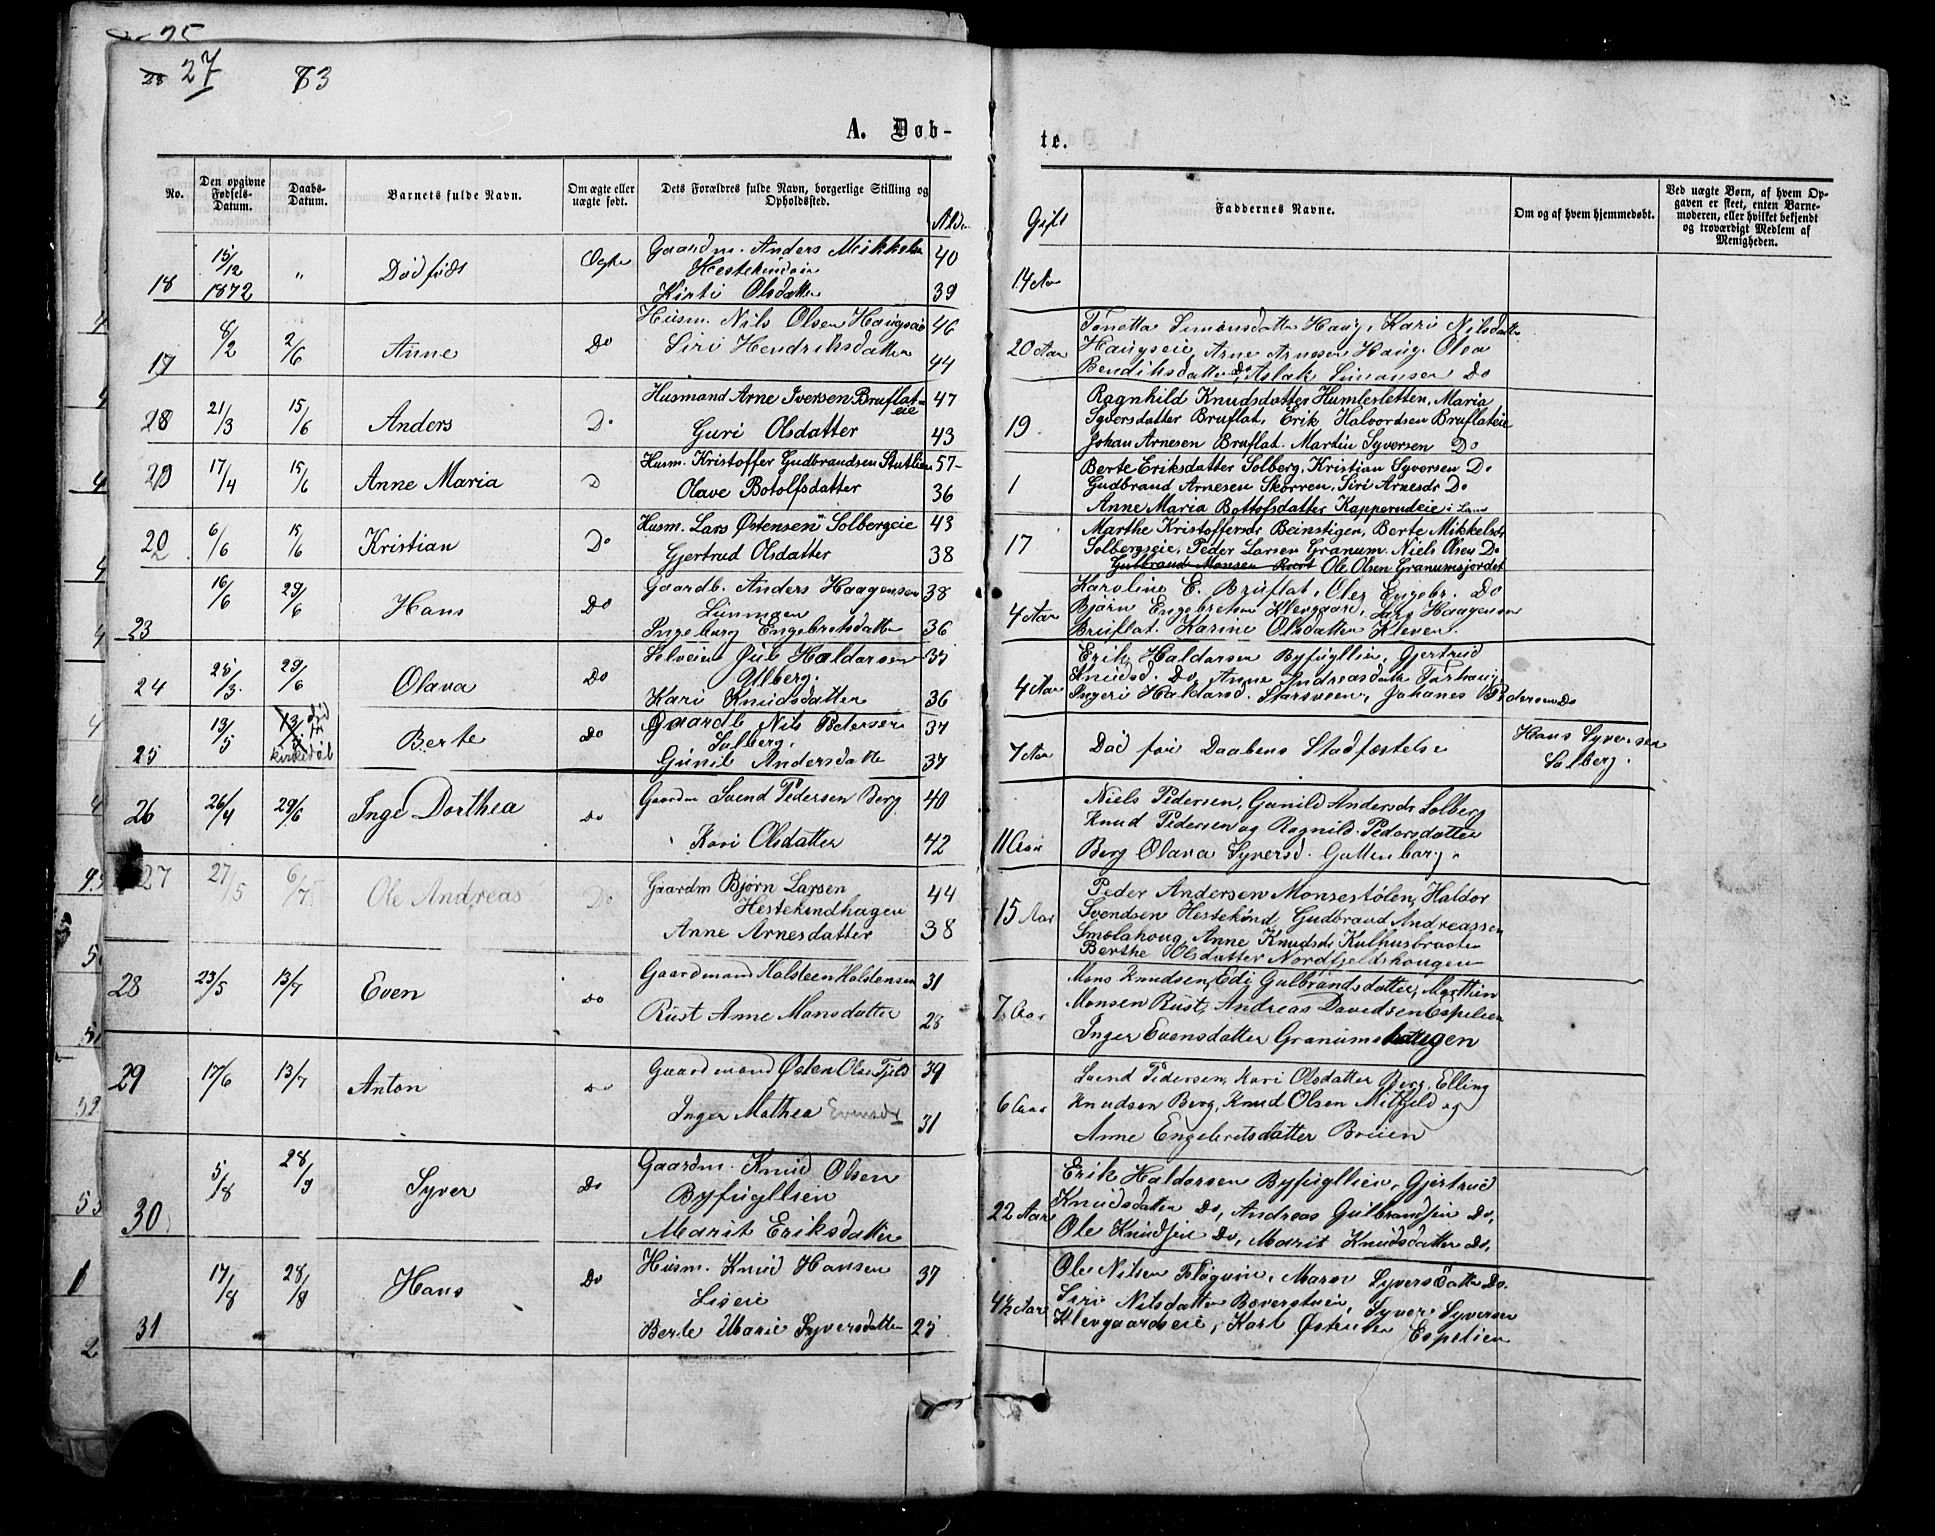 27
73
A. Døb-
te.
No.
Den opgivne Fødsels-Datum.
Daabs-Datum.
Barnets fulde Navn.
Om ægte eller uægte født.
Dets Forældres fulde Navn, borgerlige Stilling og Opholdssted.
Alder
Gift
Faddernes Navne.
Om og af hvem hjemmedøbt.
Ved uægte Børn, af hvem Opgaven er skeet, enten Barnemoderen, eller hvilket bekjendt og troværdigt Medlem af Menigheden.
18 15/12 1872 " Dødfødt Ægte Gaardm. Anders Mikkelsen 40
Kirsti Olsdatter 39 14 Aar
17 8/2 2/6 Anne Do Husm. Nils Olsen Haugseie 46
Siri Hendriksdatter 44
20 Aar Tonetta Simonsdatter Haug, Kari Nilsdatter
Haugseie, Arne Arnesen Haug. Olea
Bendiksdatter Do, Aslak Simonsen Do
21/3 15/6 Anders Do Husmand Arne Iversen Bruflateie 47
Guri Olsdatter 43
19 Ragnhild Knudsdatter Humlesletten, Maria
Syversdatter Bruflat, Erik Halvordsen Bruflateie
Johan Arnesen Bruflat. Martin Syversen Do
17/4 15/6 Anne Maria D Husm. Kristoffer Gudbrandsen Stutlien 57
Olave Botolfsdatter 36
1 Berte Eriksdatter Solberg, Kristian Syversen Do
Gudbrand Arnesen Skorren, Siri Arnesdr Do
Anne Maria Bottofsdatter Kapperudeie i Land
6/6 15/6 Kristian Do Husm. Lars Østensen Solbergeie 43
Gjertrud Olsdatter 38
17 Marthe Kristoffersdr Beinstigen, Berte Mikkelsdr
Solbergseie, Peder Larsen Granum. Niels Olsen Do
Gulbrand Monsen Rust Ole Olsen Granumsjordet
23 16/6 29/6 Hans Do Gaardb. Anders Haagensen 38
Ingeborg Engebretsdatter 36
4 Aar Karoline E. Bruflat, Ole Engebr. Do
Bjørn Engebretsen Klevgaard, Lars Haagensen
Bruflat. Karine Olsdatter Kleven.
24 25/3 29/6 Olava Do Selveier Jul Haldorsen 35
Ølberg.
Kari Knudsdatter 36
4 Aar Erik Haldorsen Byfugllien, Gjertrud
Knudsd. Do, Anne Andreasdatter
Ingeri Haldorsd. Starsveen, Johanes Pedersen Do
25 13/5 kirkedøb Berte Do Gaardb Nils Petersen 37
Solberg.
Gunil Andersdatter 37
7 Aar Død før Daabens Stadfæstelse Hans Syversen
Solberg.
26 26/4 29/6 Inge Dorthea Do Gaardm Svend Pedersen Berg 40
Kari Olsdatter 42
11 Aar Niels Pedersen, Gunild Andersdr Solberg
Knud Pedersen og Ragnild Pedersdatter
Berg Olava Syversd. Guttenborg.
27 27/5 6/7 Ole Andreas Do Gaardm Bjørn Larsen 44
Hestekindhagen
Anne Arnesdatter 38
15 Aar Peder Andersen Monsestølen, Haldor
Svendsen Hestekind, Gudbrand Andreassen
Smølahoug, Anne Knudsdr Kulhusbraaten
Berthe Olsdatter Nordfjeldshougen
28 23/5 13/7 Even Do Gaardmand Halsteen Halstensen 31
Rust Anne Monsdatter 28
7 Aar Mons Knudsen, Edi Gulbrandsdatter, Marthin
Monsen Rust, Andreas Davidsen Espelien
Inger Evensdatter Granumshaugen
29 17/6 13/7 Anton Do Gaardmand Østen Olsen Fjeld 39
Inger Mathea Evensdr 31
6 Aar Svend Pedersen, Kari Olsdatter Berg, Elling
Knudsen Berg, Knud Olsen Mitfjeld og
Anne Engebretsdatter Brüen
30 5/8 28/9 Syver Do Gaardm. Knud Olsen
Byfugllien
Marit Eriksdatter
22 Aar Erik Haldorsen Byfugllien, Gjertrud
Knudsdatter Do, Andreas Gulbrandsen Do,
Ole Knudsen Do, Marit Knudsdatter Do,
31 17/8 28/8 Hans Do Husm. Knud Hansen 37
Liseie
Berte Marie Syversdatter 25
4½ Aar Ole Nilsen Fløgum, Maren Syversdatter Do.
Siri Nilsdatter Bæverstuen, Syver Syversen
Klevgaardseie, Karl Østensen Espelien